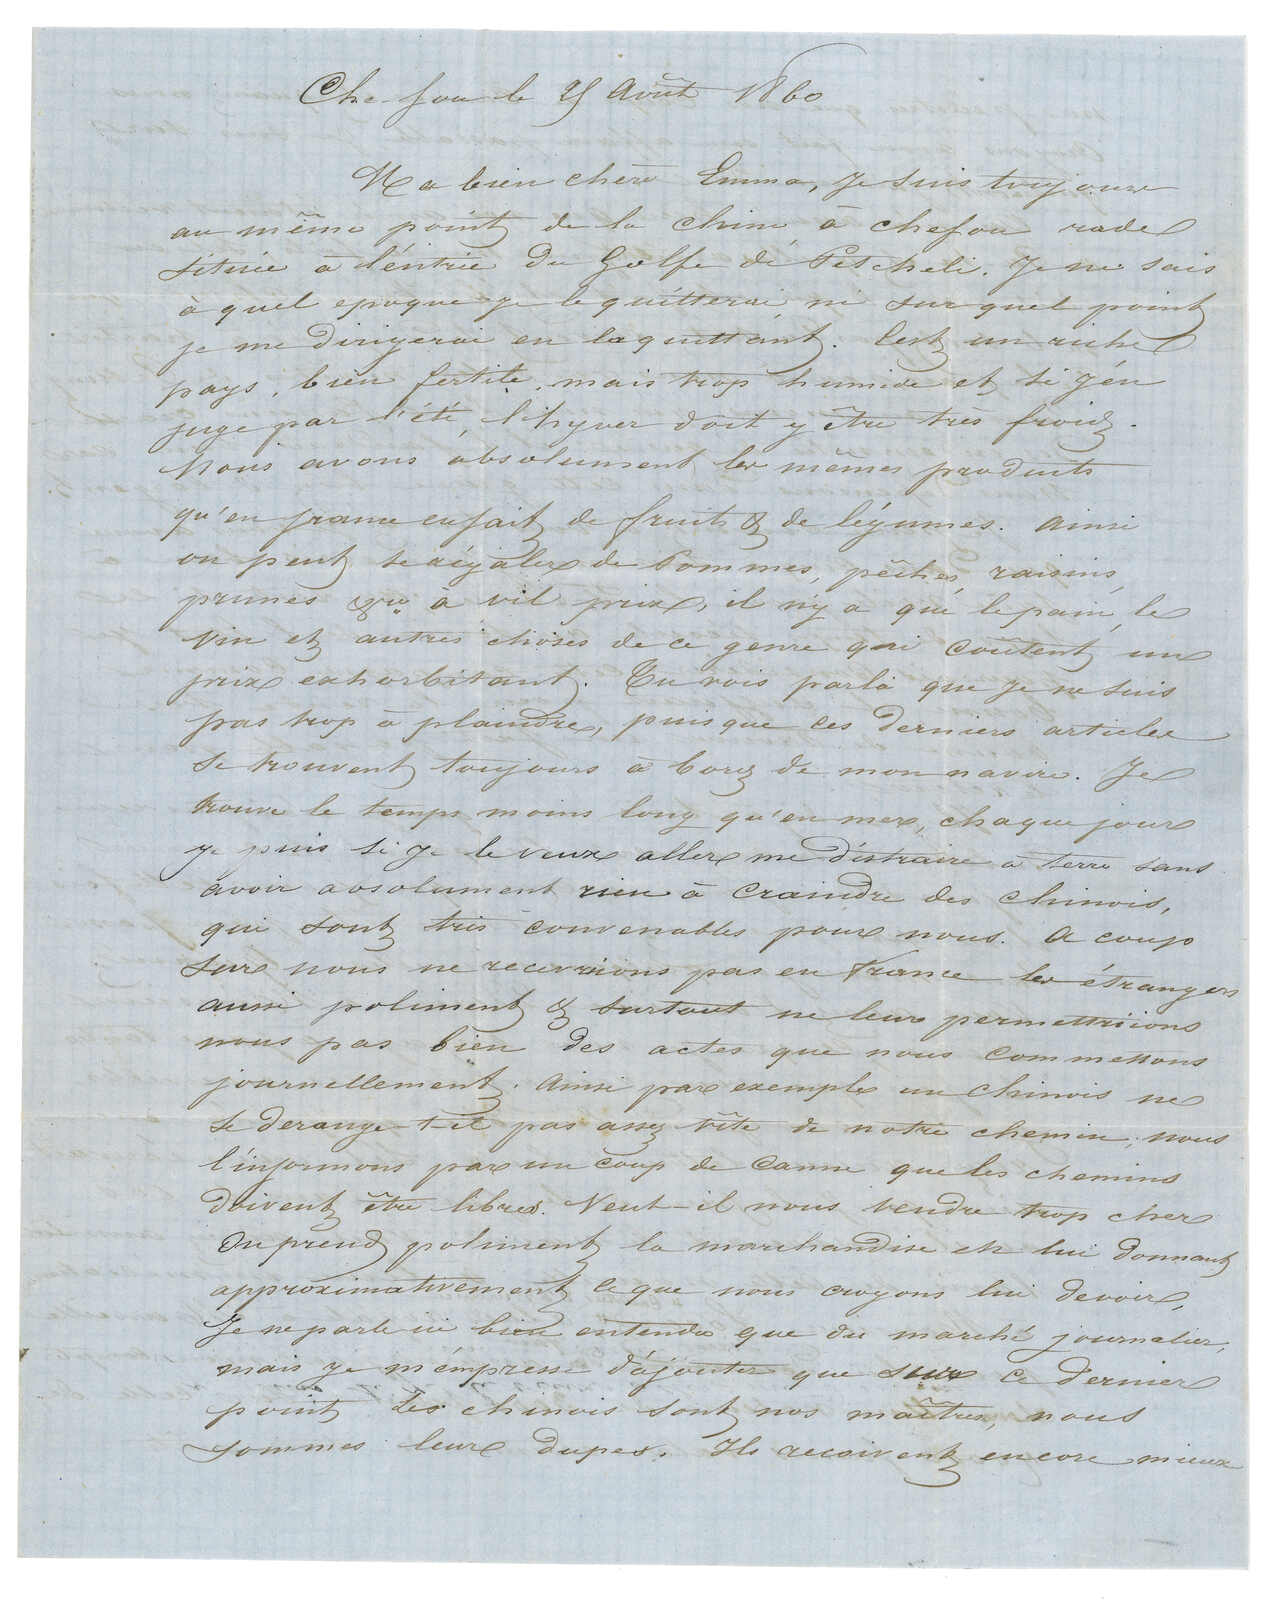 Che-fou le 25 Août 1860
Ma bien chère Emma, Je suis toujours
au même point de la Chine à chefou rade
située à l'éntrée du Golfe dé Petcheli. Je ne sais
à quel epoque je le quitterai, ni sur quel point
je me dirigerai en la quittant. C'est un riche
pays, bien fertile, mais trop humide et si j'én
juge par l'été, l'hyver doit y être très froid.
Nous avons absolument les mêmes produits
qu'en france en fait de fruits & de légumes. Ainsi
on peut se régaler de Pommes, pêches, raisins,
prunes à vil prix, il n'y a que le pain, le
vin et autres choses de ce genre qui coûtent un
prix exhorbitant. Tu vois par là que je ne suis
pas trop à plaindre, puisque ces derniers articles
se trouvent toujours à bord de mon navire. Je
trouve le temps moins long qu'en mer, chaque jour
je puis si je le veux aller me distraire à terre sans
avoir absolument rien à craindre des chinois,
qui sont très convenables pour nous. A coup
sur nous ne recevrions pas en France les étrangers
aussi poliment & surtout ne leur permettrions
nous pas bien des actes que nous commettons
journellement. Ainsi par exemple un Chinois ne
se derange-t-il pas assez vîte de notre chemin, nous
l'informons par un coup de canne que les chemins
doivent être libres. Veut-il nous vendre trop cher
on prend poliment la marchandise en lui donnant
approximativement ce que nous croyons lui devoir,
Je ne parle ici bien entendu que du marché journalier,
mais je m'émpresse d'ajouter que sur ce dernier
point les chinois sont nos maîtres, nous
sommes leurs dupes. Ils recoivent encore mieux